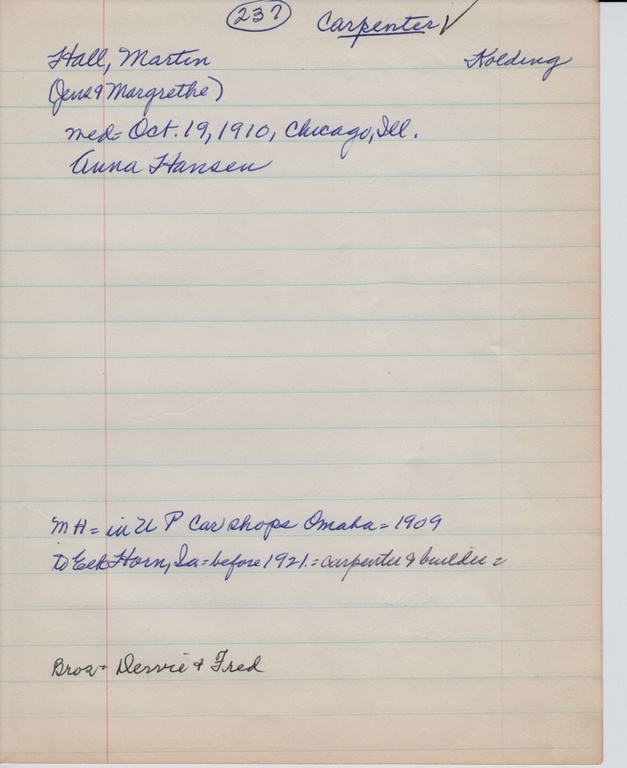 237 Carpenter ✓
Hall, Martin Kolding
(Jens & Margrethe)
med = Oct. 19, 1910, Chicago, Ill.
Anna Hansen
MH = in U P Car shops Omaha = 1909
to Elk Horn, Ia = before 1921. = carpenter & builder =
Bros = & Fred